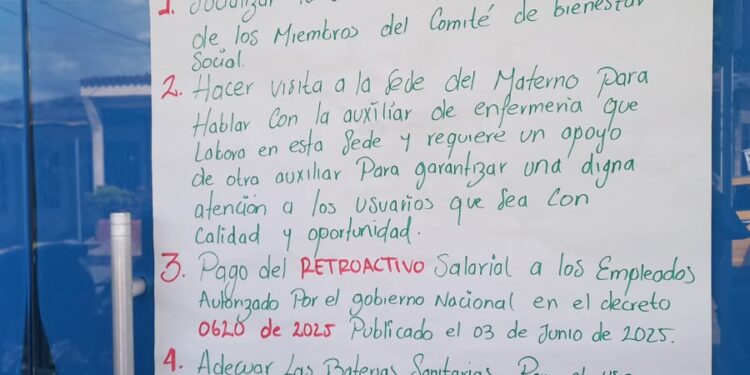 1. Socializar
de los Miembros del Comité de bienestar
Social.
2. Hacer visita a la Sede del Materno Para
Hablar Con la auxiliar de enfermeria que
Labora en esta Sede y requiere un apoyo
de otra auxiliar Para garantizar una digna
atención a los usuarios que sea con
Calidad y oportunidad.
3. Pago del RETROACTIVO Salarial a los Empleados
Autorizado Por el gobierno Nacional en el decreto
0620 de 2025 Publicado el 03 de Junio de 2025.
4. Adecuar Las Baterias Sanitarias